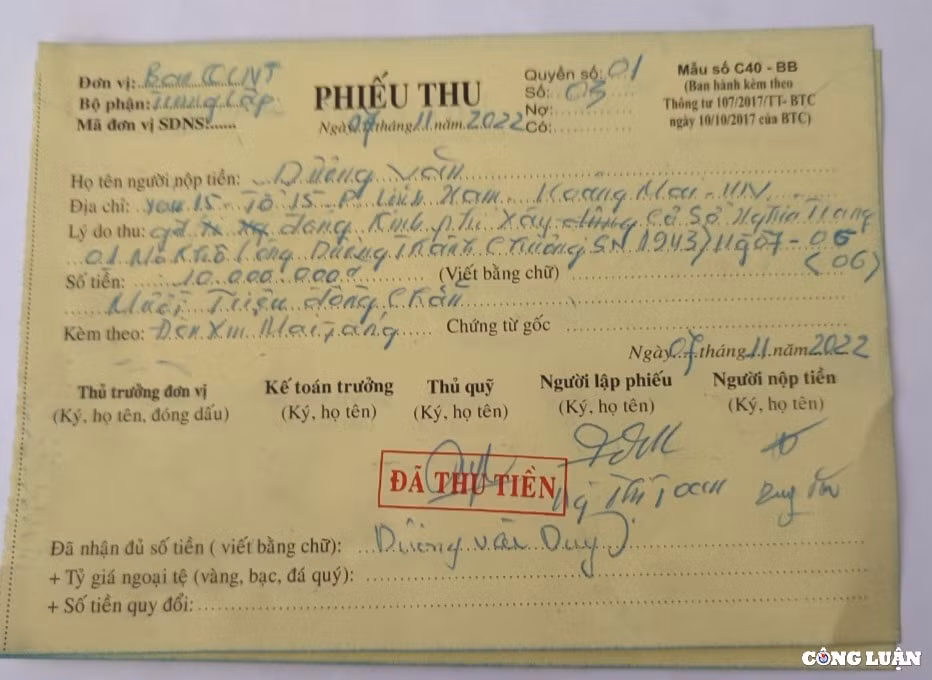 Đơn vị: Ban
Bộ phận: Trung Lập
Mã đơn vị SDNS:......
PHIẾU THU
Ngày 07 tháng 11 năm 2022
Quyển số: 01
Số: 03
Nợ:
Có:
Mẫu số C40 - BB
(Ban hành kèm theo
Thông tư 107/2017/TT- BTC
ngày 10/10/2017 của BTC)
Họ tên người nộp tiền: Dương Văn
Địa chỉ: Tổ 15 P Lĩnh Nam Hoàng Mai - HN
Lý do thu: đóng Kinh phí Xây dựng Cơ Sở Nghĩa Trang
01 Mộ Dương Thành Chương SN 1943)
Số tiền: 10.000.000đ (Viết bằng chữ)
Mười Triệu đồng Chẵn
Kèm theo: Đơn Xin Mai táng Chứng từ gốc
Ngày 07 tháng 11 năm 2022
Thủ trưởng đơn vị
(Ký, họ tên, đóng dấu)
Kế toán trưởng
(Ký, họ tên)
Thủ quỹ
(Ký, họ tên)
Người lập phiếu
(Ký, họ tên)
Người nộp tiền
(Ký, họ tên)
ĐÃ THU TIỀN
Đã nhận đủ số tiền ( viết bằng chữ): Dương Văn Duy
+ Tỷ giá ngoại tệ (vàng, bạc, đá quý):
+ Số tiền quy đổi:
CÔNG LUẬN